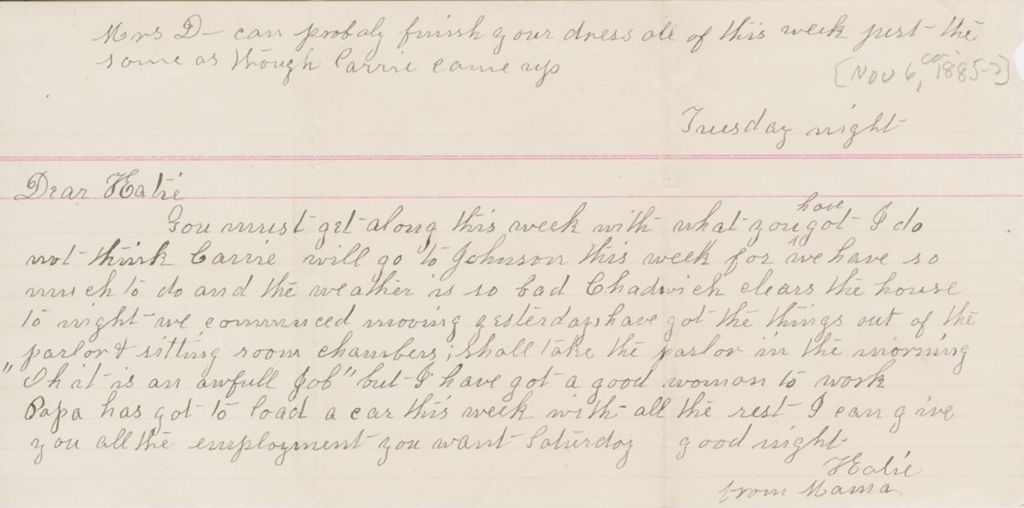 Mrs D- can probaly finish your dress all of this week just the
same as though Carrie came up
[Nov 6, 1885-?]
Tuesday night
Dear Katie
You must get along this week with what you have got I do
not think Carrie will go to Johnson this week for we have so
much to do and the weather is so bad Chadwick clears the house
to night - we commnced moving yesterday have got the things out of the
parlor & sitting room chambers; Shall take the parlor in the morning
"Oh it is an awfull Job" but I have got a good woman to work
Papa has got to load a car this week with all the rest I can give
you all the employment you want Saturday good night
Katie
from Mama